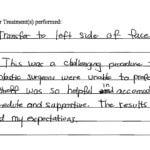 r Treatment(s) performed:
Transfer to left side of face
This was a challenging procedure
plastic surgeons were unable to
staff was so helpful in
and supportive. The results
my expectations.